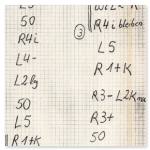 L5
50
R4i
L4-
L2bg
50
L5
R1+K
R4i bleiben
3
L5
R1+K
R3-L2K
R3+
50